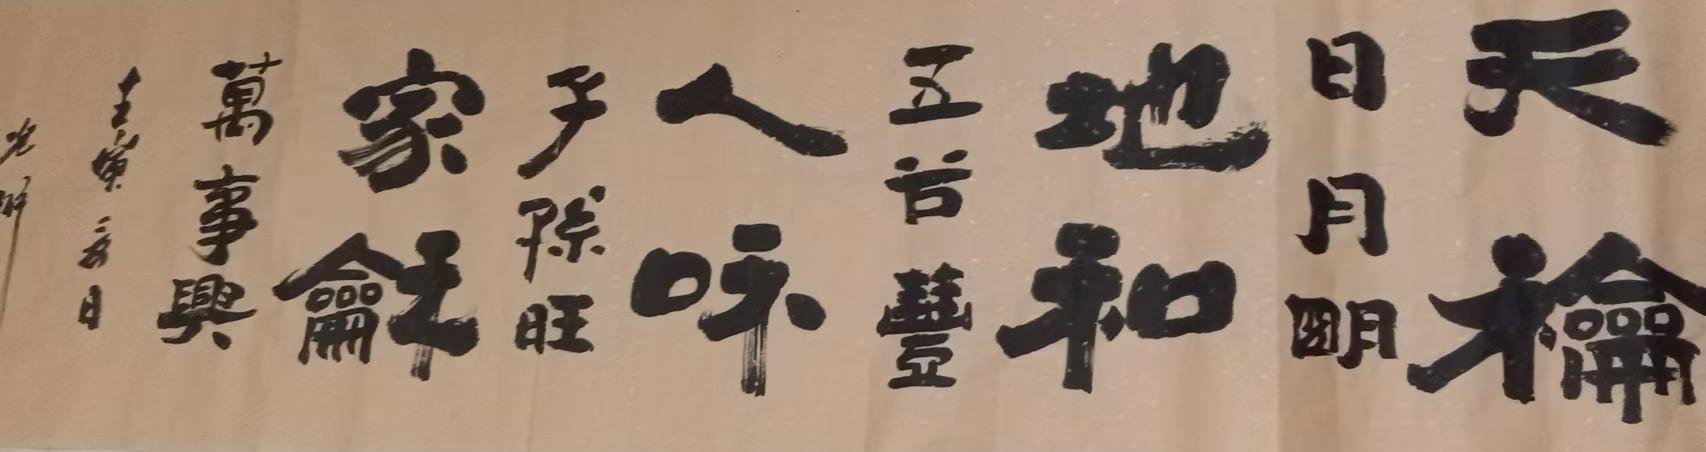 天龢
日月明
地和
五谷豐
人咊
子孫旺
家龢
萬事興
壬寅日